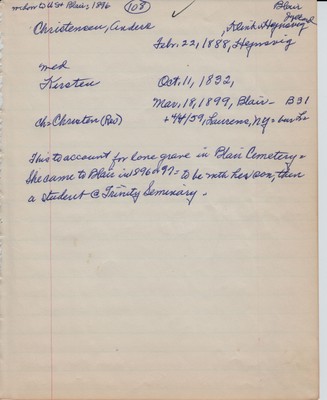 to Blair, 1896 (108) Blair
Christensen, Anders , Klink, Hejnsvig
Febr. 22, 1888, Hejnsvig
med
Kirsten Oct. 11, 1832,
Mar. 18, 1899, Blair - B31
ch = Christen (Rev) + 4/4/59, Laurens, NY =
This to account for lone grave in Blair Cemetery =
She came to Blair in 1896 or 97 = to be with her son, then
a student @ Trinity Seminary.